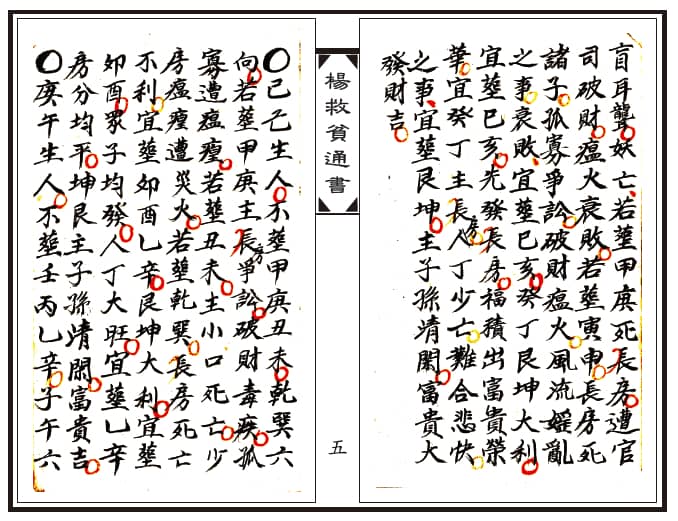 盲耳聾妖亡若塟甲庚死長房遭官
司破財瘟火衰敗若塟寅申長房死
諸子孤寡爭訟破財瘟火風流婬亂
之事衰敗宜塟巳亥癸丁艮坤大利
宜塟巳亥先發長房福積出富貴榮
華宜癸丁主長房人丁少亡難合悲快
之事宜塟艮坤主子孫清閑富貴大
發財吉
楊救貧通書
五
〇己亡生人不塟甲庚丑未乾巽六
向若塟甲庚主長房爭訟破財毒疾孤
寡遭瘟㾮若塟丑未主小口死亡少
房瘟㾮遭災火若塟乾巽長房死亡
不利宜塟卯酉乙辛艮坤大利宜塟
卯酉眾子均發人丁大旺宜塟乙辛
房分均平坤艮主子孫清閑富貴吉
〇庚午生人不塟壬丙乙辛子午六